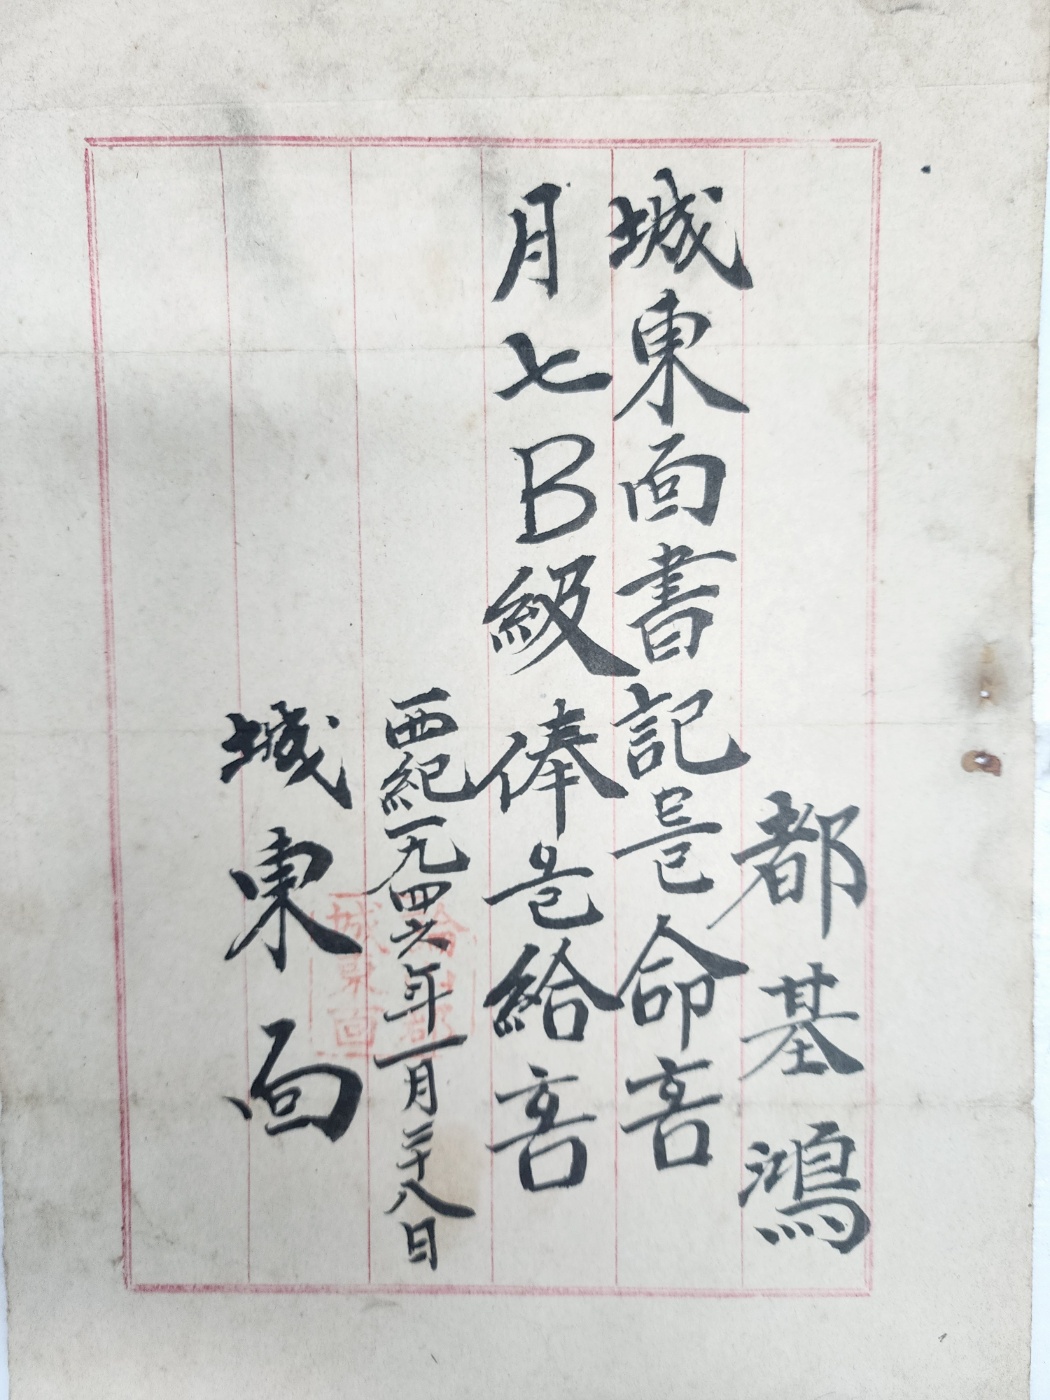 都基鴻
城東面書記를命홈
月七B級俸을給홈
西紀一九四六年一月二十八日
城東面
城東面